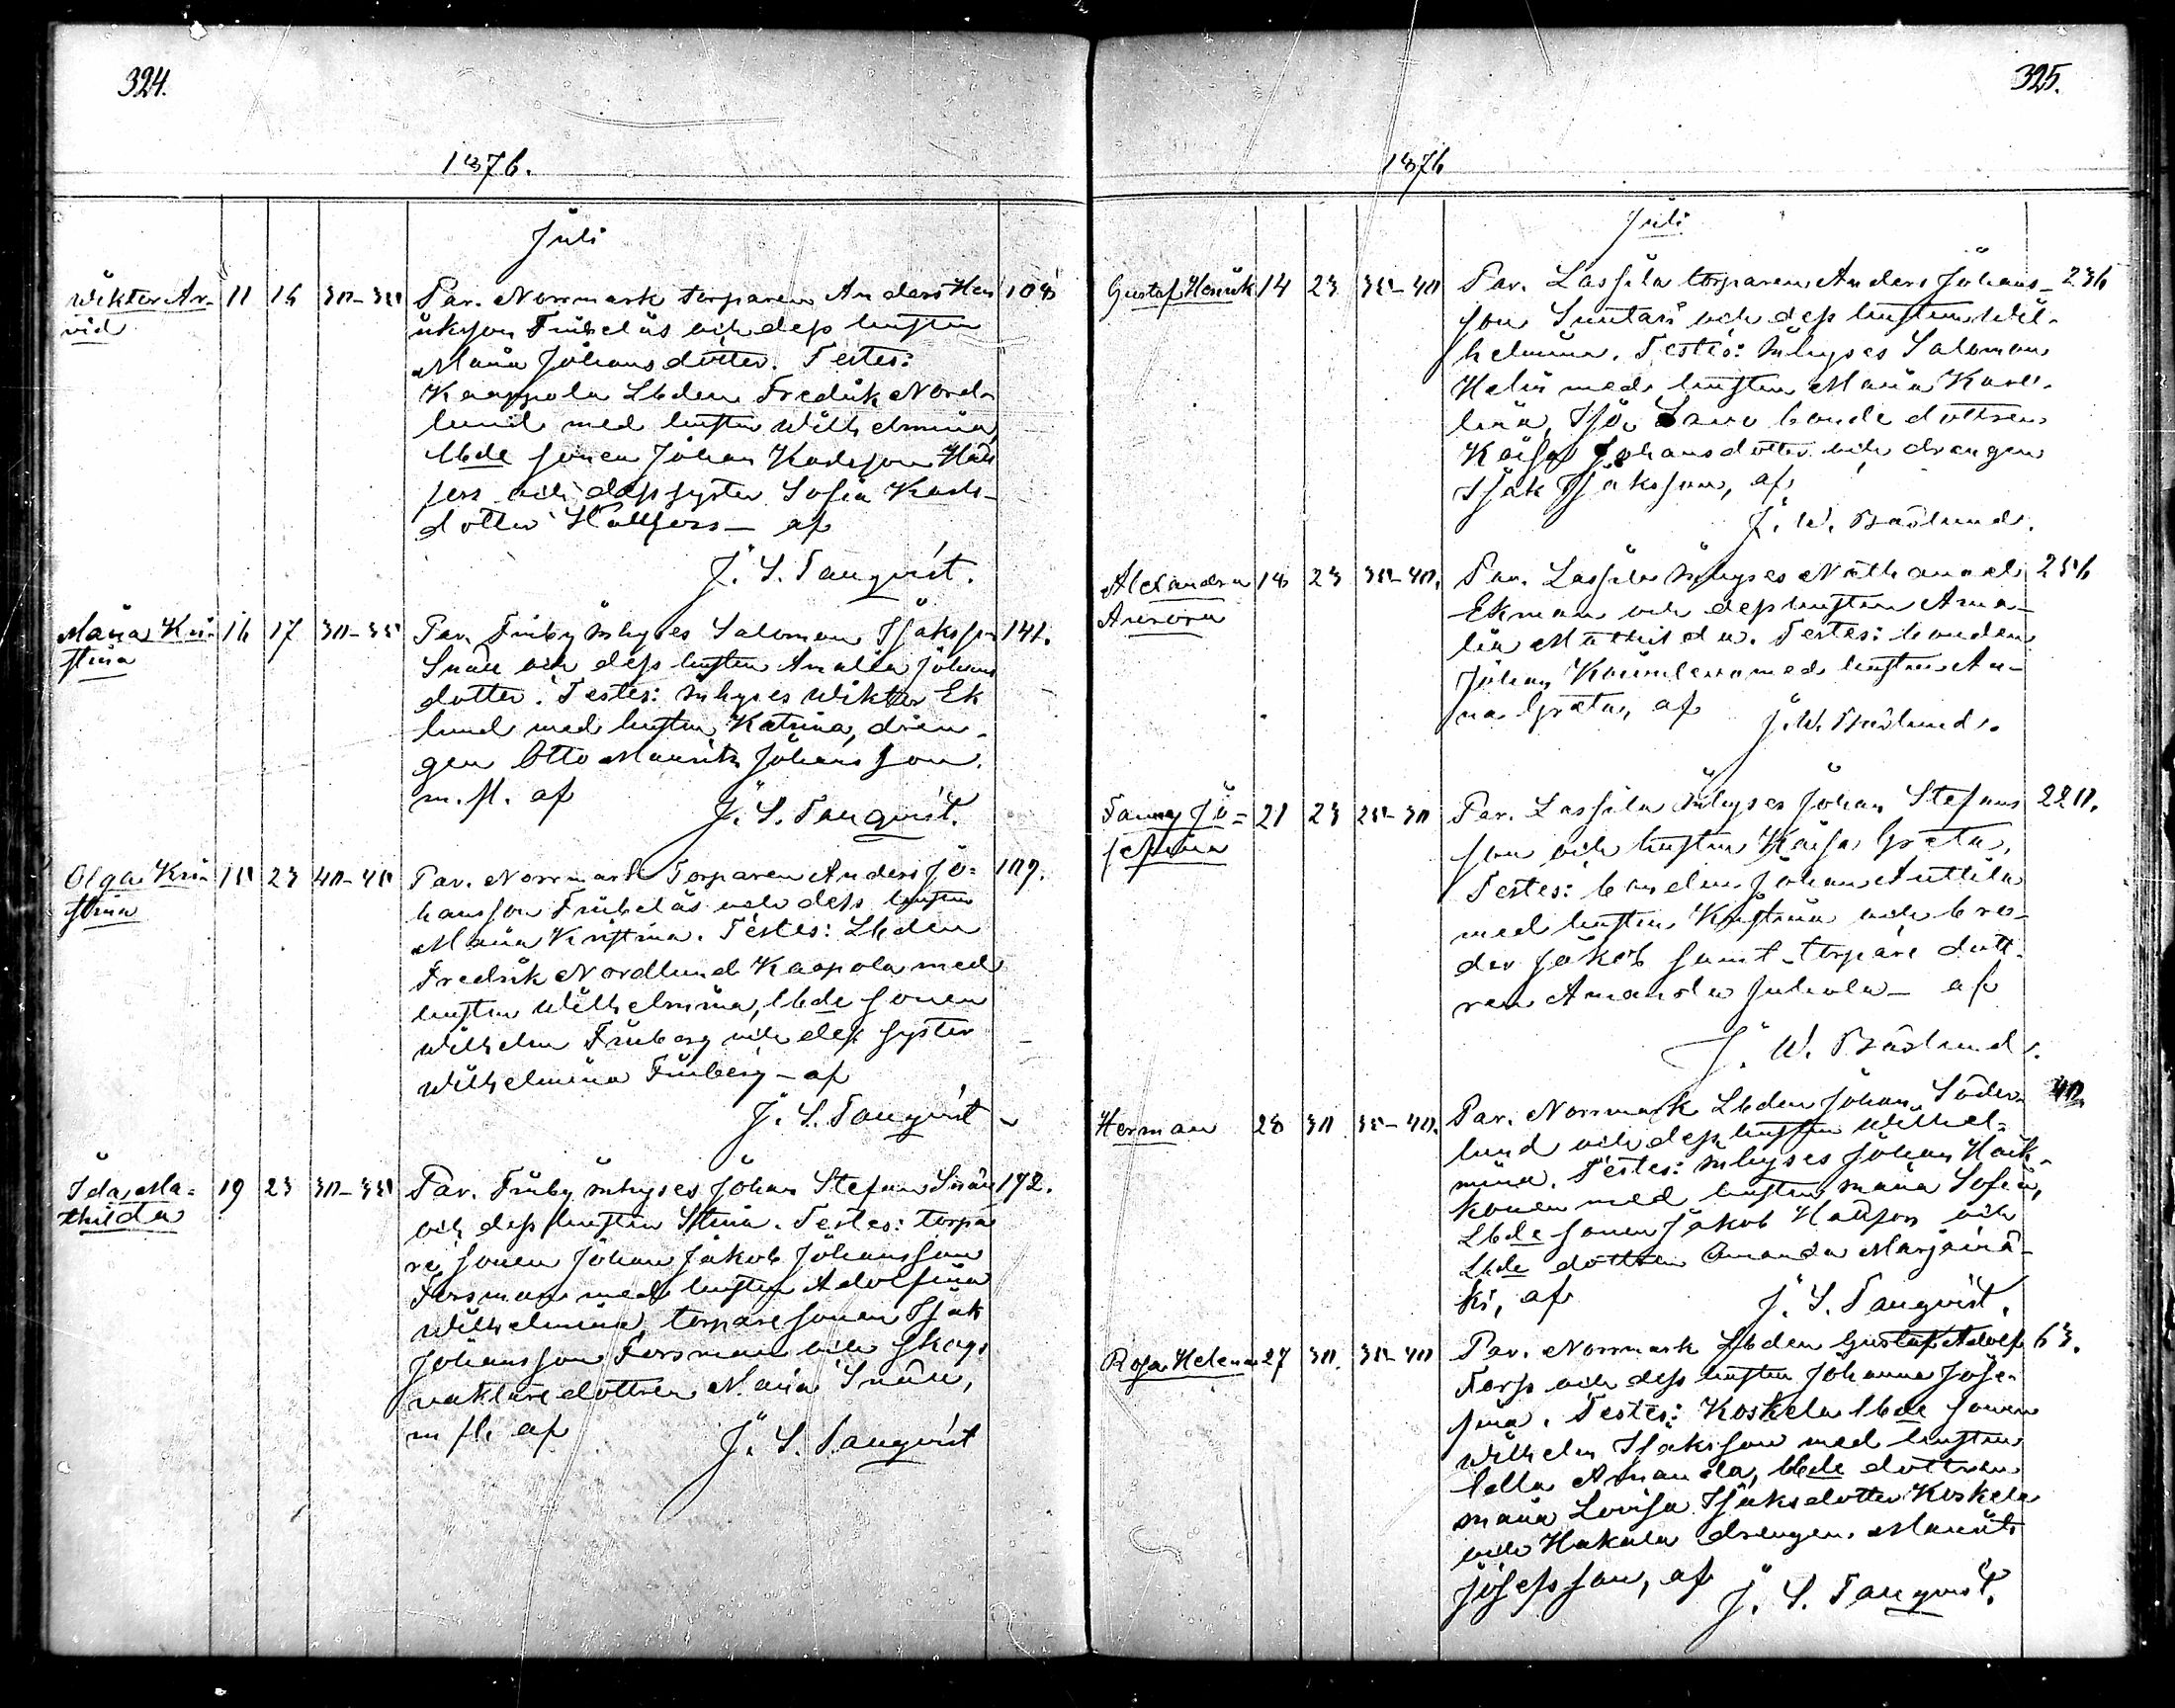 324.
1876.
Juli
Wiktor Ar- 11 16 30-35 Par. Norrmark torparen Anders Hen 108
vid riksson Friibeläs och dess hustru
Maria Johansdotter. Testes:
Kaappola Lbden Fredrik Nord-
lund med hustru Wilhelmina,
lbde sonen Johan Karlsson Hall
fors och dess syster Sofia Karls-
dotter Hallfors - af
J. S. Tanqvist.
Maria Kri- 16 17 30-35 Par. Friiby inhyses Salomon Isaksson 141.
stina Snäll och dess hustru Amalia Johans
dotter. Testes: inhyses Wiktor Ek
lund med hustru Katrina, drän-
gen Otto Maurits Johansson
m. fl. af
J. S. Tanqvist.
Olga Kri- 15 23 40-45 Par. Norrmark Torparen Anders Jo= 109.
stina hansson Friibeläs och dess hustru
Maria Kristina. Testes: Lbden
Fredrik Nordlund Kaapola med
hustru Wilhelmina, lbde sonen
Wilhelm Friberg och dess syster
Wilhelmina Friiberg - af
J. S. Tanqvist
Ida Ma= 19 23 30-35 Par. Friiby inhyses Johan Stefan Snäll 192.
thilda och dess hustru Stina. Testes: torpa
re sonen Johan Jakob Johansson
Forsman med hustru Adolfina
Wilhelmina, torpare sonen Isak
Johansson Forsman och skogs
vaktare dottren Maria Snäll,
m fl. af
J. S. Tanqvist
325.
1876
Juli
Gustaf Henrik 14 23 35-40 Par. Lassila torparen Anders Johans- 236
son Suntari och dess hustru Wil-
helmina. Testes: Inhyses Salomon
Helin med hustru Maria Karo-
lina, bonde dottren
Kaisa Johansdotter och drängen
Isak Isaksson, af
J. W. Båslund.
Alexandra 18 23 35-40. Par. Lassila Inhyses Nathanael 256
Aurora Ekman och dess hustru Ama-
lia Mathilda. Testes: bonden
Johan med hustru An-
na Greta, af
J. W. Båslund.
Fanny Jo= 21 23 25-30 Par. Lassila Inhyses Johan Stefans 220.
sefina son och hustru Kaisa Greta,
Testes: bonden Johan Anttila
med hustru Kristina och bro-
der Jakob samt torpare dott-
ren Amanda Juhola - af
J. W. Båslund.
Herman 28 30 35-40. Par. Norrmark Lbden Johan Söder- 40
lund och dess hustru Wilhel-
mina. Testes: Inhyses Johan Haik-
konen med hustru Maria Sofia,
Lbde sonen Jakob Hallfors och
Lbde dottren Amanda Marjamä-
ki, af
J. S. Tanqvist.
Rosa Helena 27 30. 35-40 Par. Norrmark Lbden Gustaf Adolf 63.
Forss och dess hustru Johanna Jose-
fina. Testes: Koskela lbde sonen
Wilhelm Isaksson med hustru
Ulla Amanda, lbde dottren
Maria Lovisa Isaksdotter Koskela
och Hakala drängen Maurits
Josefsson, af
J. S. Tanqvist.